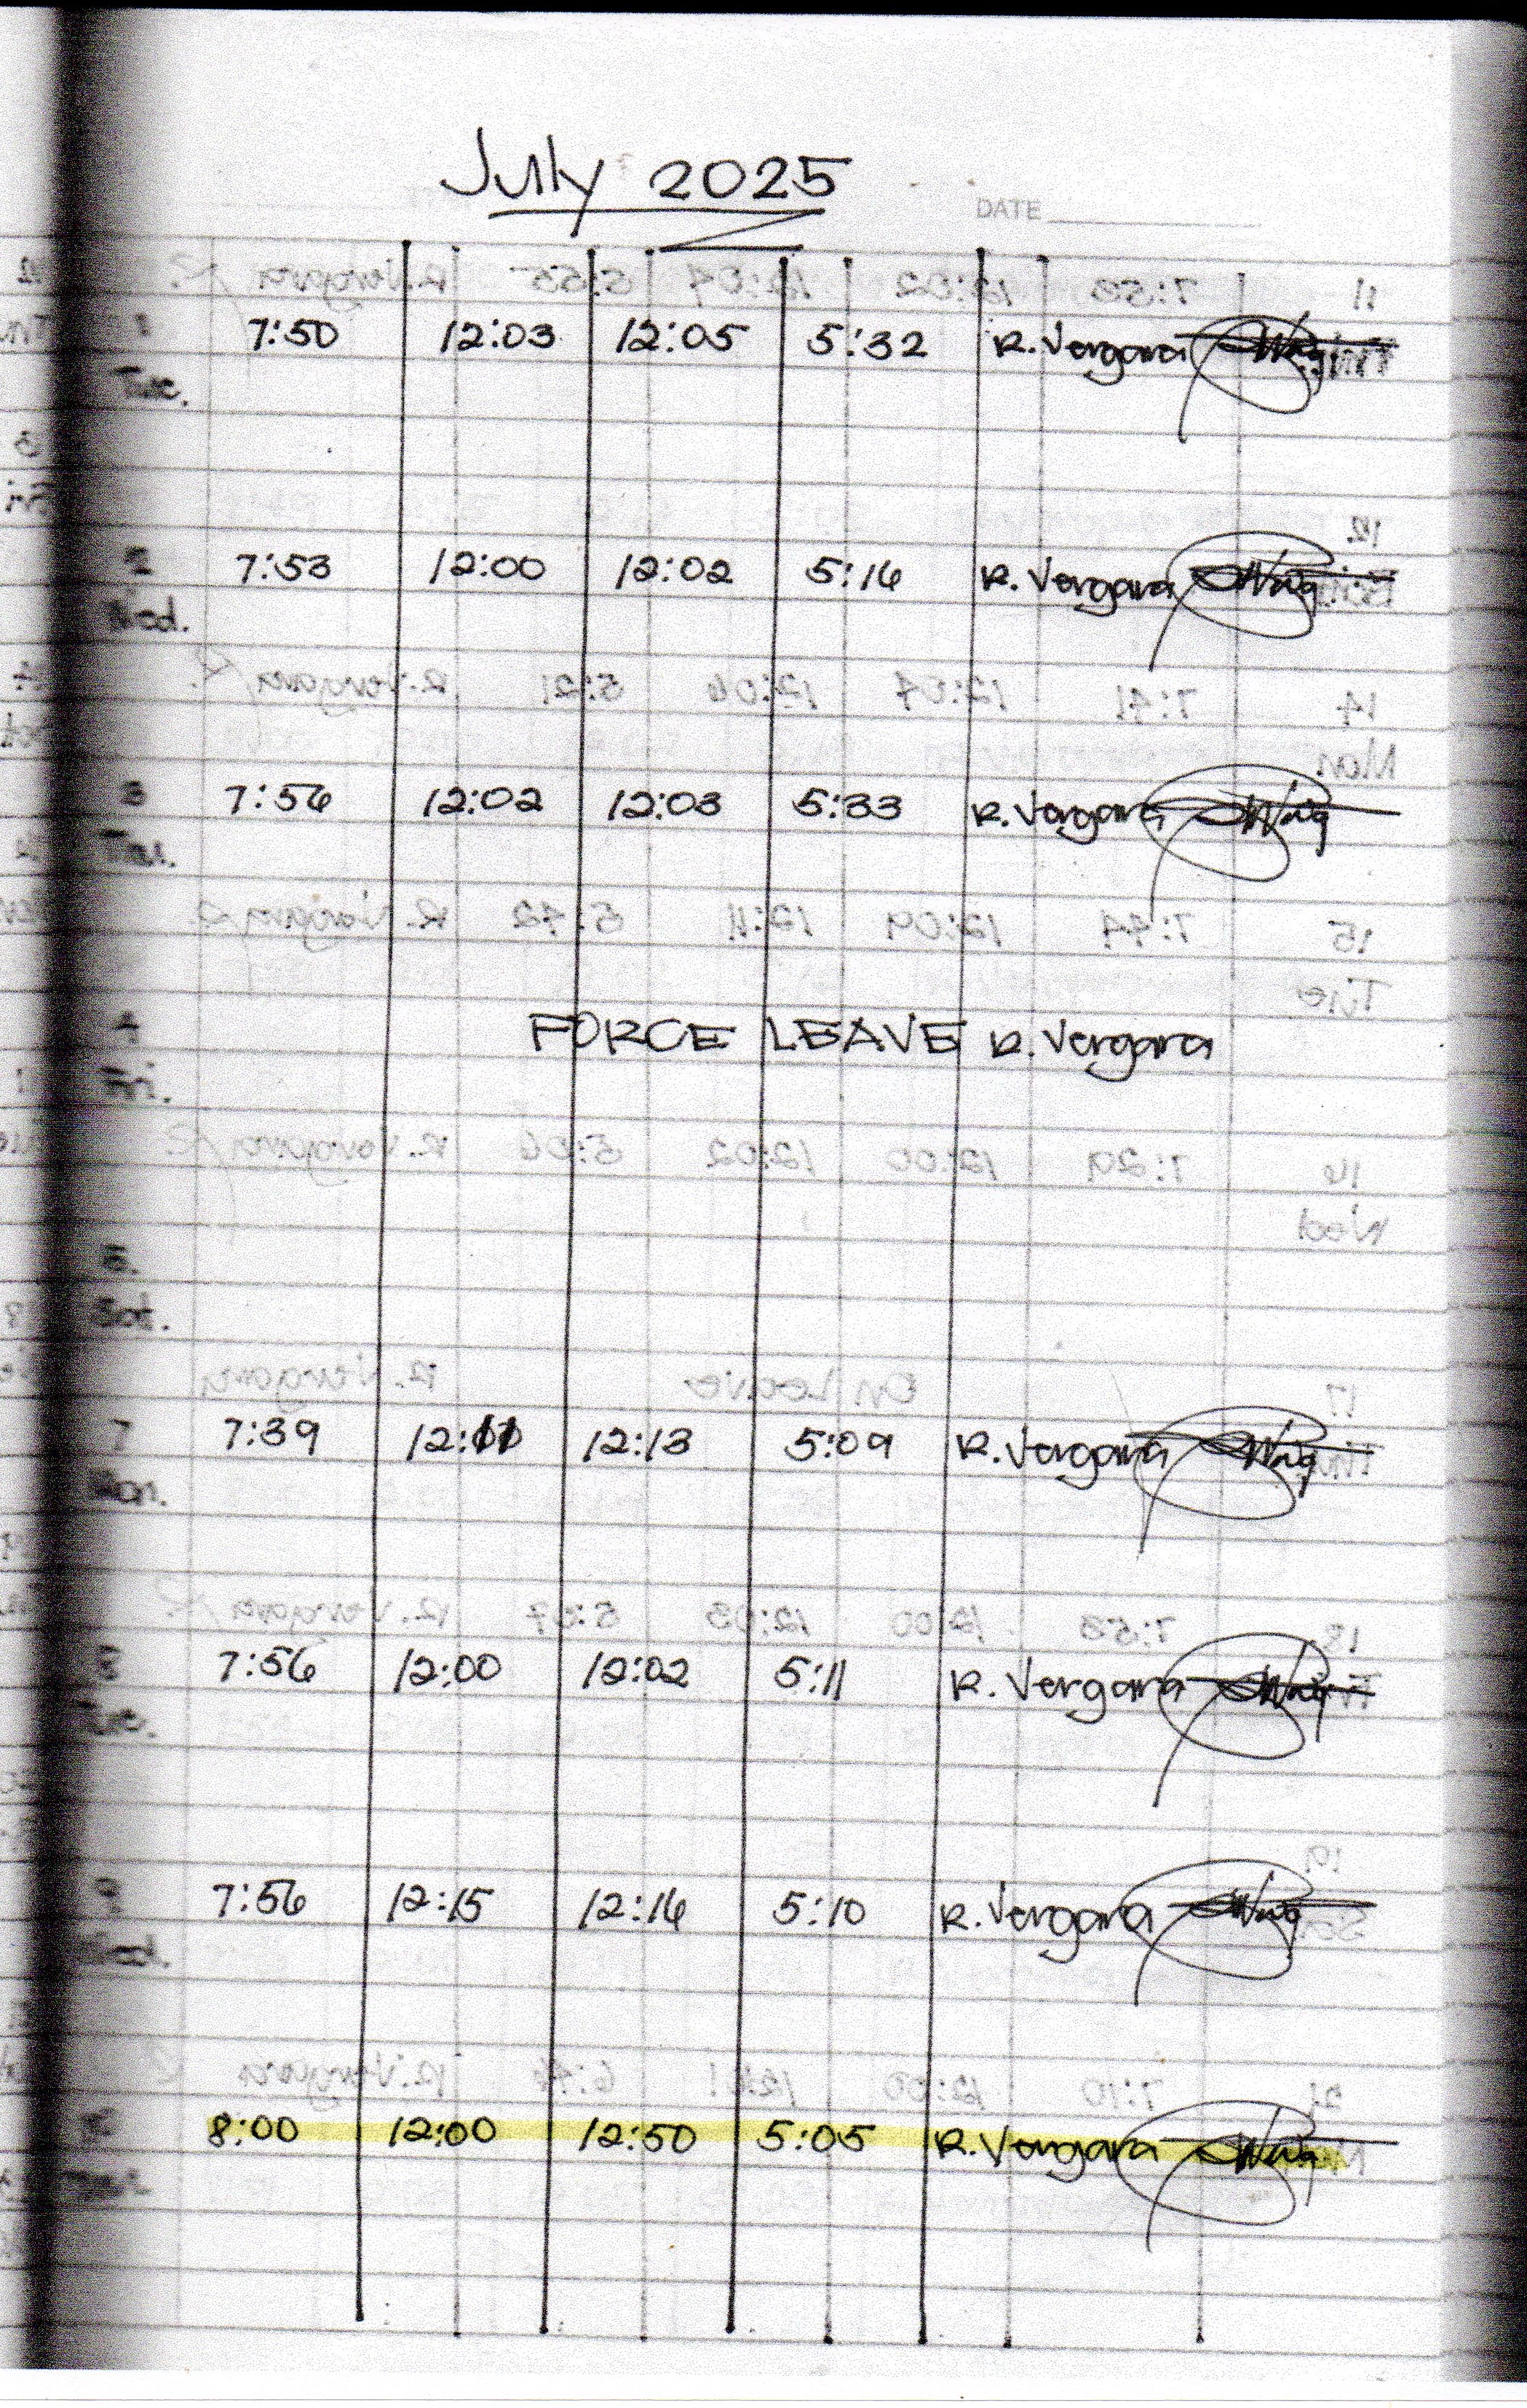 July 2025
DATE
1 7:50 12:03 12:05 5:32 R. Vergara
Tue.
2 7:53 12:00 12:02 5:16 R. Vergara
Wed.
3 7:56 12:02 12:03 5:33 R. Vergara
4 FORCE LEAVE R. Vergara
Fri.
5.
Sat.
7 7:39 12:11 12:13 5:09 R. Vergara
Mon.
8 7:56 12:00 12:02 5:11 R. Vergara
Tue.
9 7:56 12:15 12:16 5:10 R. Vergara
8:00 12:00 12:50 5:05 R. Vergara